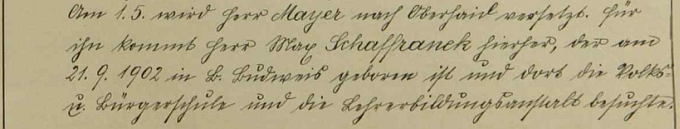 Am 1.5. wird Herr Mayer nach Oberhaid versetzt. Für
ihn kommt Herr Max Schaffranek hierher, der am
21.9.1902 in B. Budweis geboren ist und dort die Volks-
u. Bürgerschule und die Lehrerbildungsanstalt besuchte.